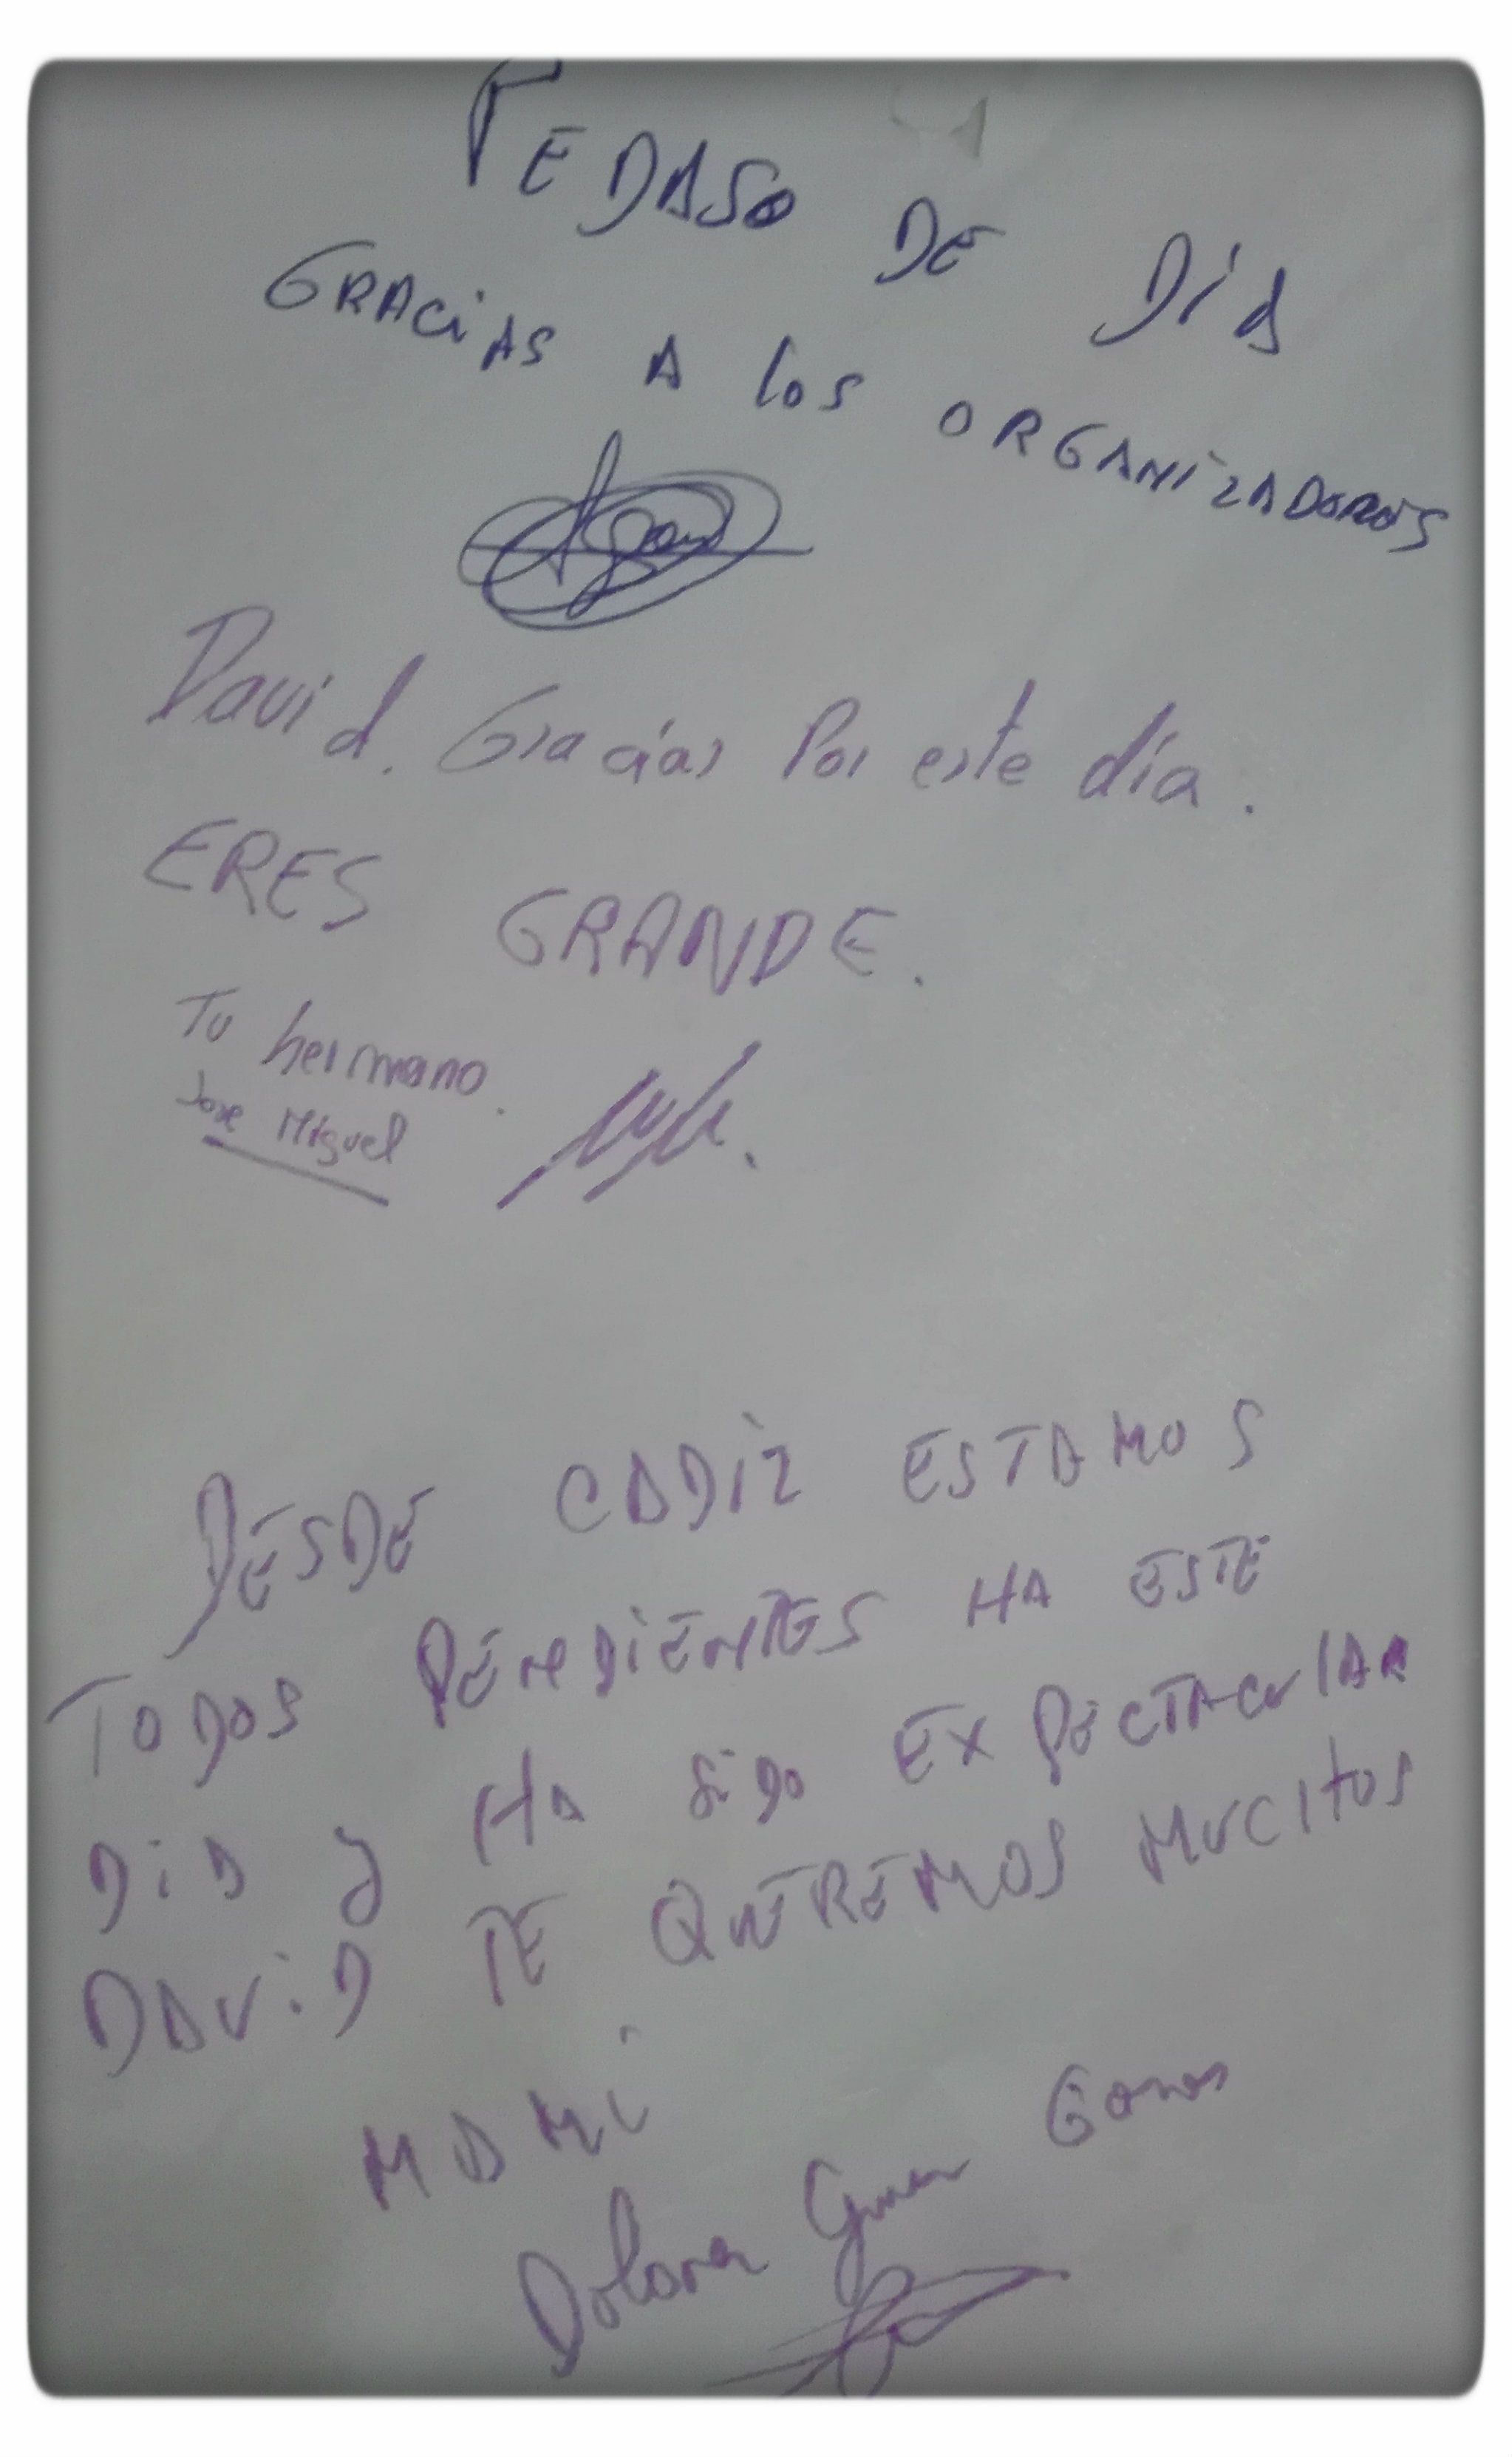 PEDASO DE DíA
GRACiAS A los ORGANiZADORES
David. Gracias Por este día.
ERES GRANDE.
Tu hermano.
Jose Miguel
DESDE CADiZ ESTAMOS
TODOS PENDIENTES HA ESTE
DiA y HA SiDO EXPECTACulAR
DAViD TE QUEREMOS MUCHOS
MAMi
Dolores